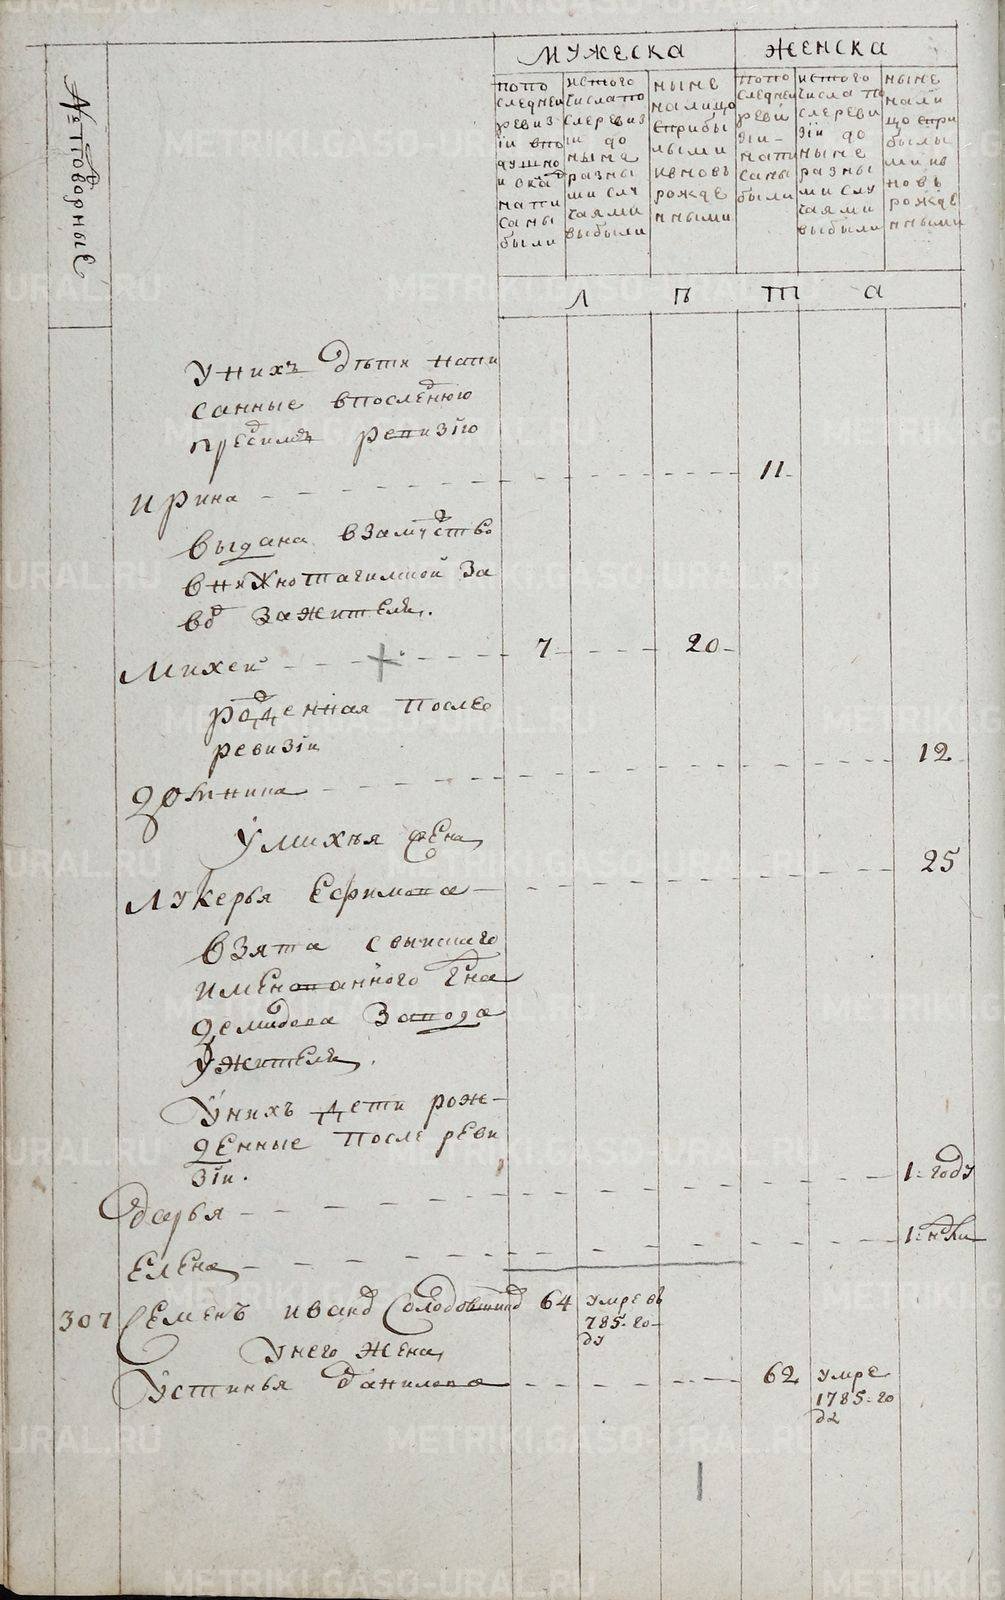 МУЖЕСКА
ЖЕНСКА
№ подворные
попо
следней
ревиз
іи впо
душно
и окла
напи
саны
были
истого
числа по
сле ревиз
іи до
ныне
разны
ми слу
чаями
выбыли
ныне
налицо
сприбы
лыми
ивновь
рожде
нными
попо
следней
реви
зіи
напи
саны
были
истого
числа по
сле реви
зіи до
ныне
разны
ми слу
чаями
выбыли
ныне
нали
цо спри
былы
ми ив
новь
рожде
нными
лѣта
У нихъ дѣти напи
санные впоследнюю
предсимъ ревизію
Ирина 11
выдана взамуство
внижнотагилской за
вод зажителя.
Михеи 7 20
рожденная после
ревизіи
Домнина 12
У михѣя жена
Лукерья Ефимова 25
Взята свышшаго
именованного Гна
демидова завода
ужителя.
У нихъ дети рож-
денные после реви
зіи.
Дарья 1: году
Елена 1: нѣли
307 Семенъ иванов Солодовников 64 умре въ
785-го-
ду
У него жена
Устинья данилова 62 умре
1785: го
да